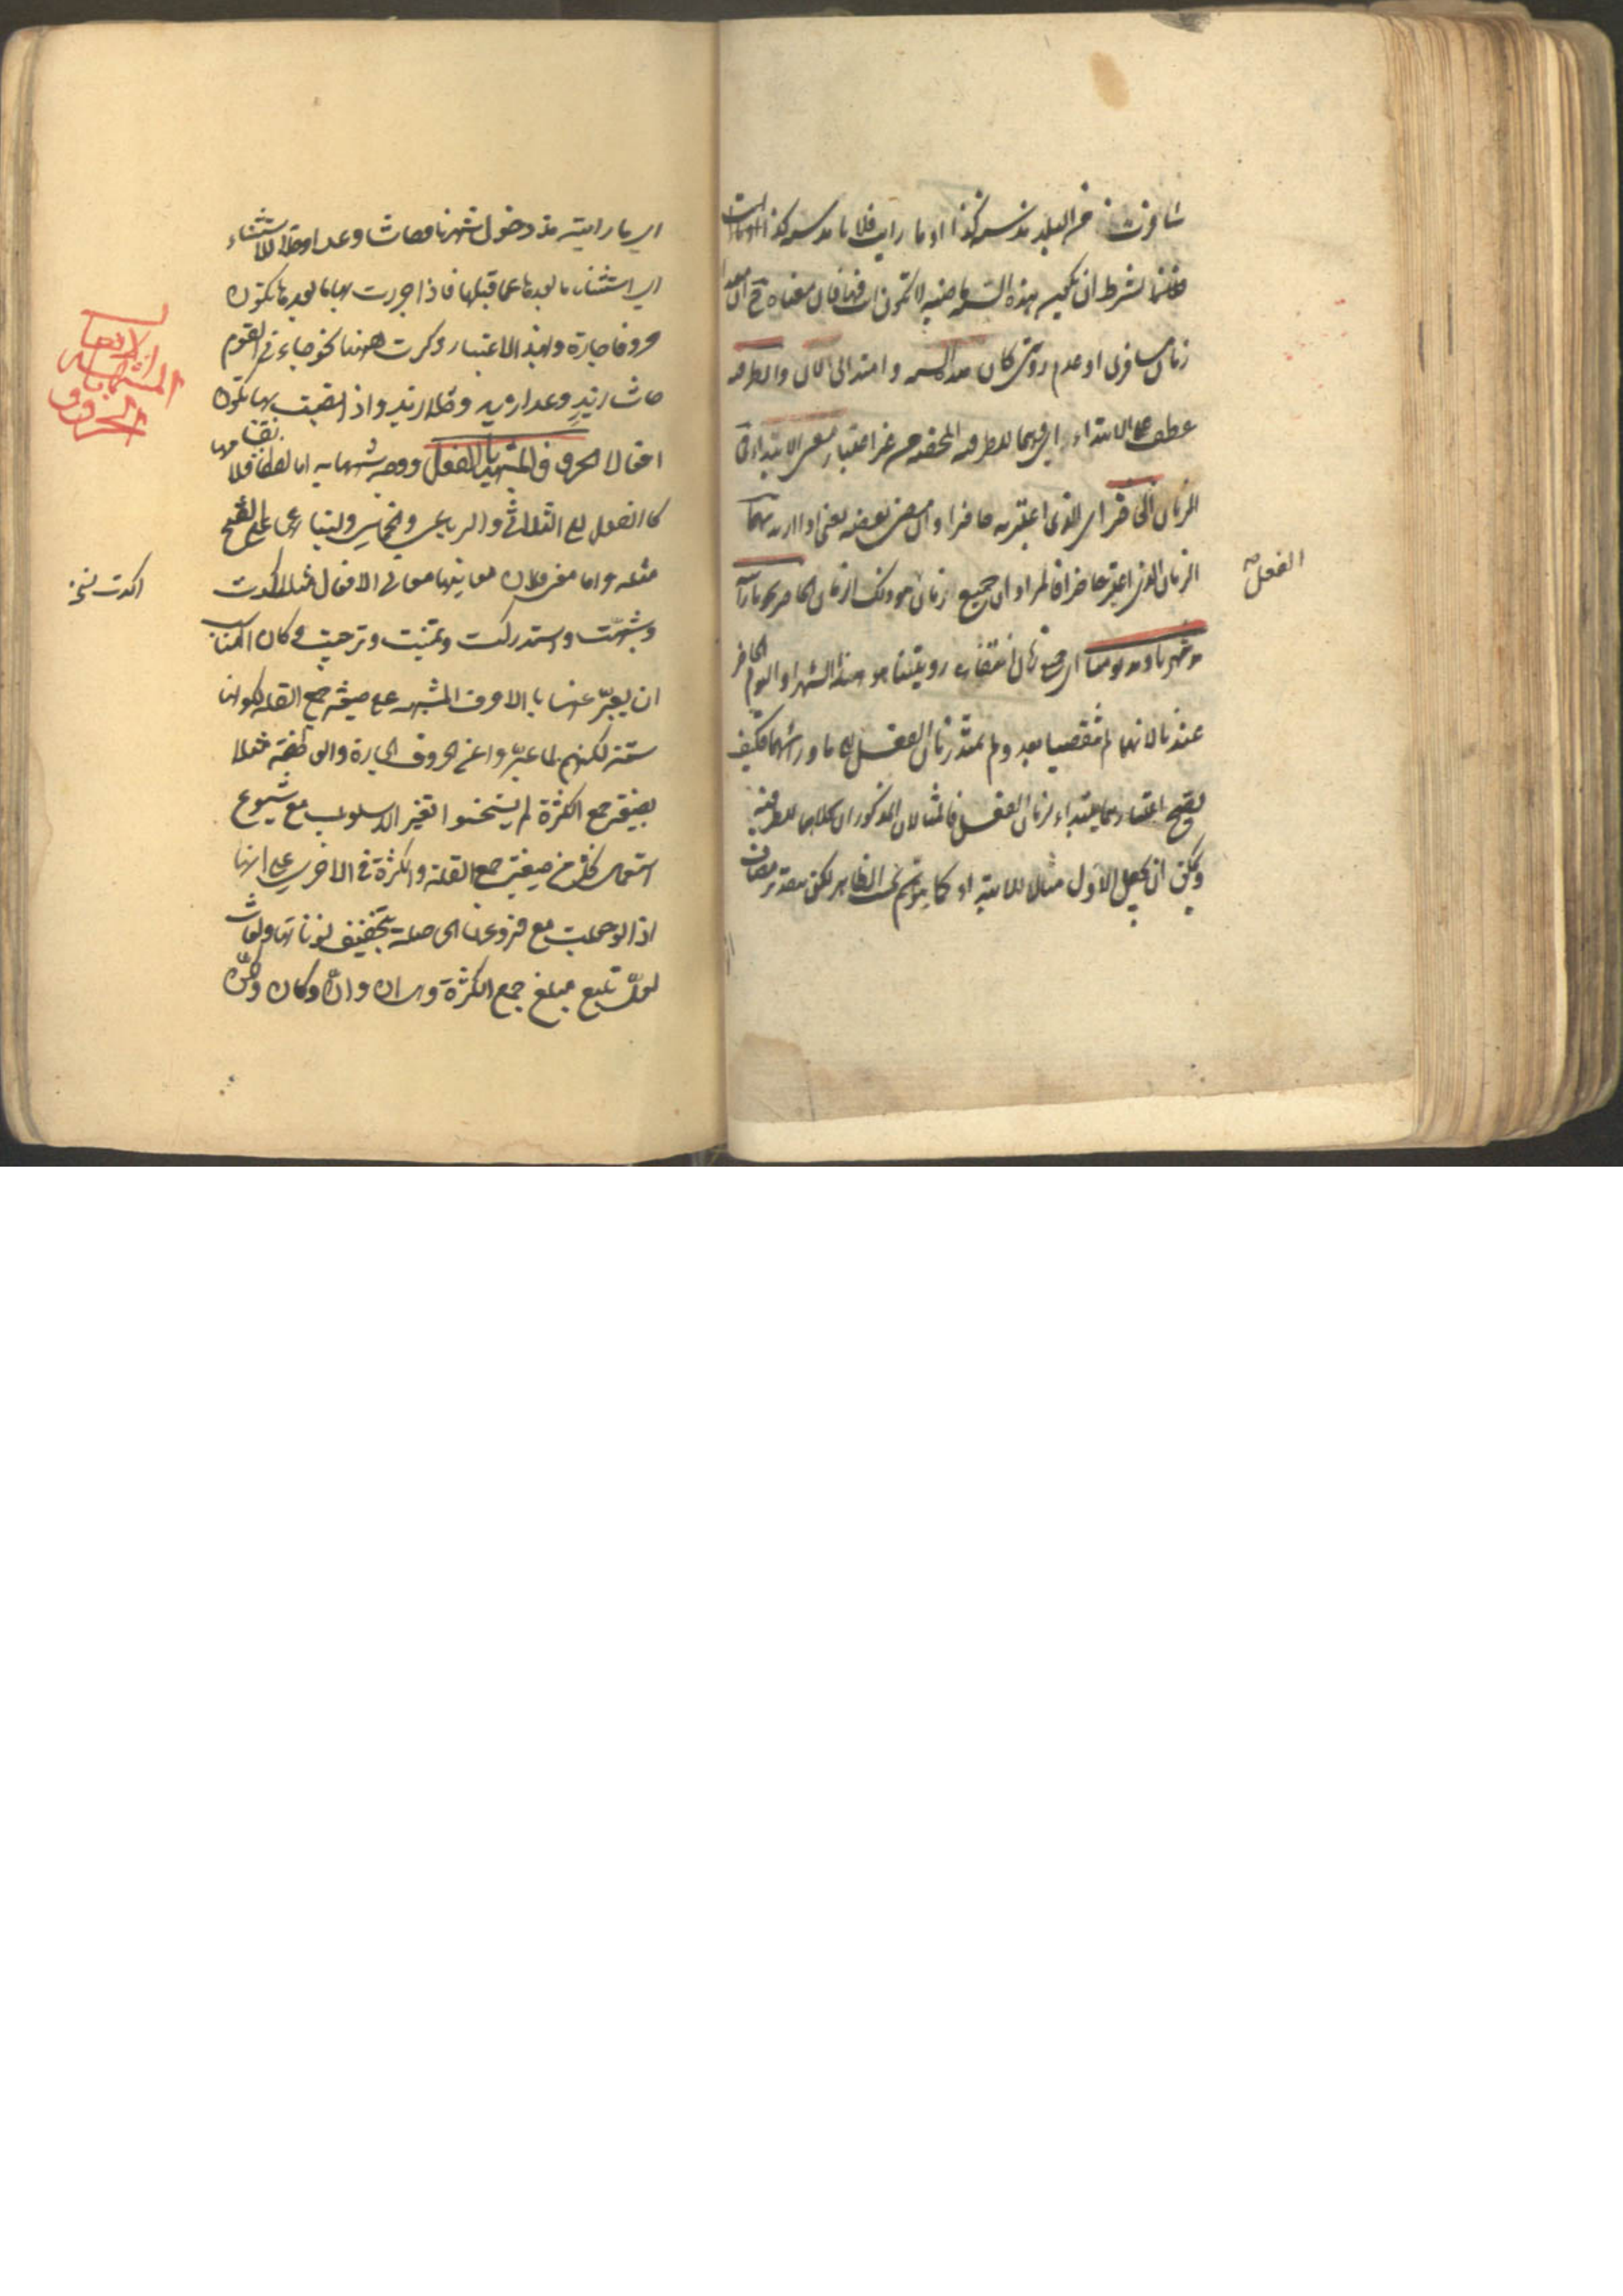 سافرت من البلد مذ سنة كذا او ما رايت فلانا مذ سنة كذا
بشرط ان تكون هذه السنة ماضية لا تكون انت فيها فان معناه ح ان مبدأ
زمان مسافرتى او عدم رؤيتى كان هذه السنة وامتد الى الآن والظرفية
عطف على الابتداء اى هما للظرفية المحضة من غير اعتبار معنى الابتداء فى
الزمان الحاضر اى الذى اعتبرته حاضرا وان مضى بعضه يعنى اذا اريد بهما
الزمان الذى اعتبر حاضرا فالمراد ان جميع زمان هو ذلك الزمان الحاضر نحو ما رأيته
الفعل صح
مذ شهرنا ومذ يومنا اى جميع زمان انتفاء رويتنا هو هذا الشهر او اليوم الحاضر
عندنا لانهما لم ينقضيا بعد ولم يمتد زمان الفعل الى ما ورائهما فكيف
يصح اعتبارهما مبتداء لزمان الفعل فالمثالان المذكوران كلاهما للظرفية
ويمكن ان يجعل الاول مثالا للابتداء كما يتوهم بحسب الظاهر لكن بتقدير مضاف
اى ما رايته مذ دخول شهرنا وحاشا وعدا وخلا للاستثناء
اى استثناء ما بعدها عما قبلها فاذا جررت بها ما بعدها تكون
حروفا جارة ولهذا الاعتبار ذكرت ههنا نحو جاءنى القوم
حاشا زيد وعدا زيد وخلا زيد واذا نصبت بها تكون
افعالا الحروف المشبهة بالفعل ووجه شبهها به اما لفظا فلانقسامها
كالفعل الى الثلاثى والرباعى والخماسى ولبنائها على الفتح
مثله واما معنى فلان معانيها معانى الافعال مثل اكدت
اكدت نسخه
وشبهت واستدركت وتمنيت وترجيت وكان المناسب
ان يعبر عنها بالاحرف المشبهة على صيغة جمع القلة لكونها
ستة لكنهم لما عبروا عن الحروف الجارة والعاطفة مثلا
بصيغة جمع الكثرة لم يستحسنوا تغيير الاسلوب مع شيوع
استعمال كل من صيغتى جمع القلة والكثرة فى الاخرى على انها
اذا لوحظت مع فروعها الحاصلة بتخفيف نوناتها ولغات
لعل تبلغ مبلغ جمع الكثرة وهى ان وان وكان ولكن
الحروف المشبهة بالافعال